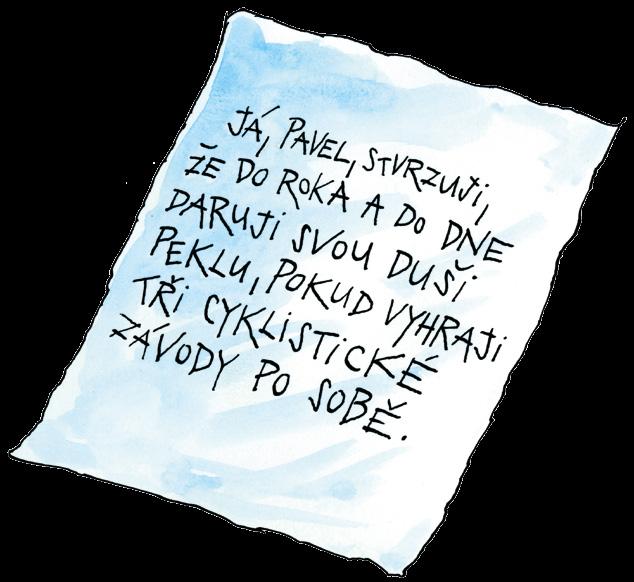 JÁ, PAVEL, STVRZUJI,
ŽE DO ROKA A DO DNE
DARUJI SVOU DUŠI
PEKLU, POKUD VYHRAJI
TŘI CYKLISTICKÉ
ZÁVODY PO SOBĚ.